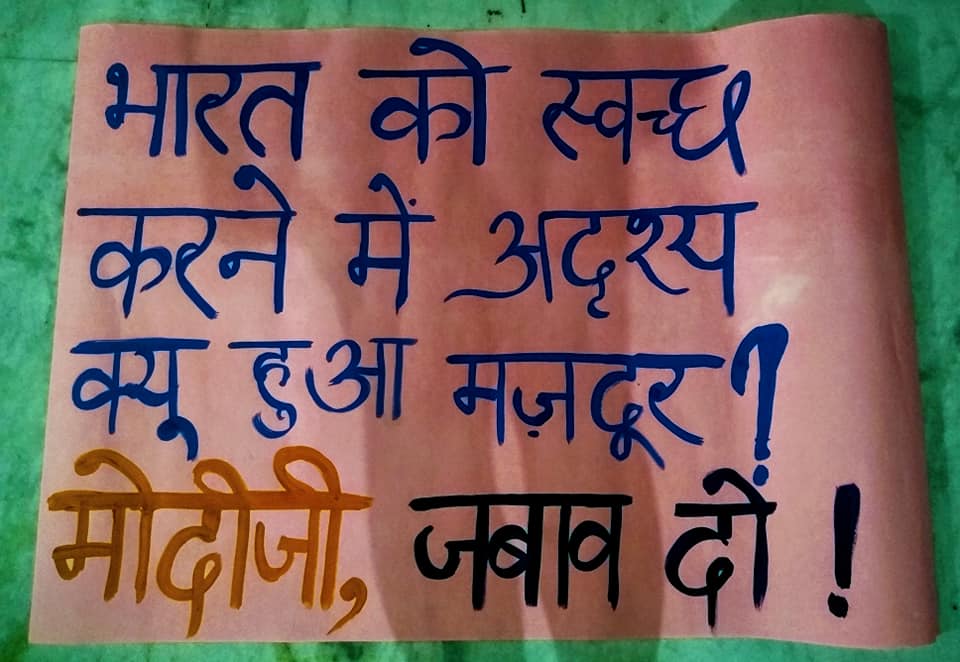 भारत को स्वच्छ
करने में अदृश्य
क्यू हुआ मज़दूर?
मोदीजी, जबाव दो!